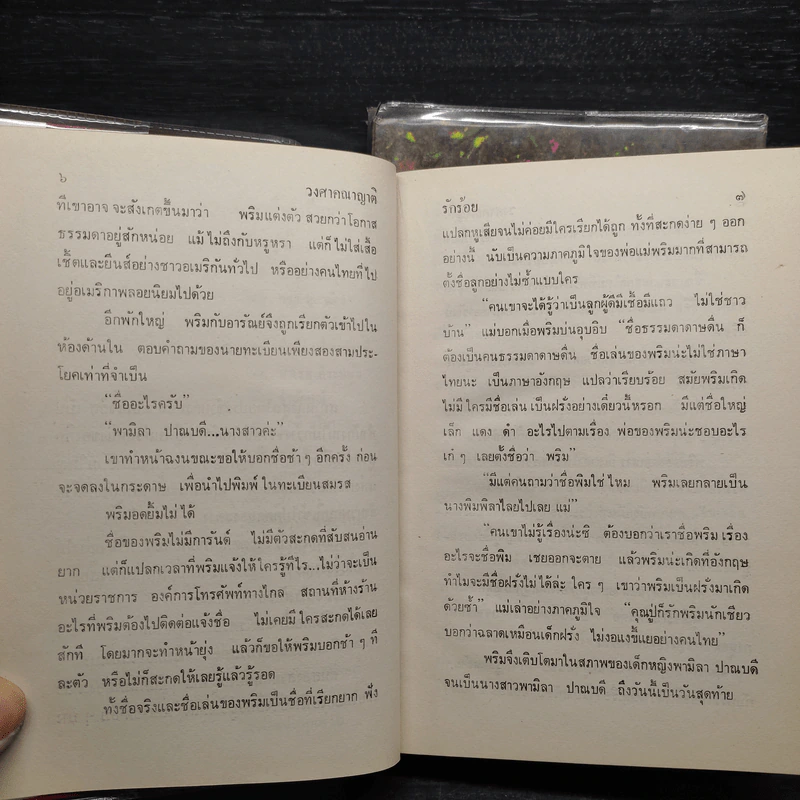 ๖
วงศาคณาญาติ
ที่เขาอาจ จะสังเกตขึ้นมาว่า พริมแต่งตัว สวยกว่าโอกาส
ธรรมดาอยู่สักหน่อย แม้ ไม่ถึงกับหรูหรา แต่ก็ ไม่ใส่เสื้อ
เชิ้ตและยีนส์อย่างชาวอเมริกันทั่วไป หรืออย่างคนไทยที่ไป
อยู่อเมริกาพลอยนิยมไปด้วย
อีกพักใหญ่ พริมกับอารัณย์จึงถูกเรียกตัวเข้าไปใน
ห้องด้านใน ตอบคำถามของนายทะเบียนเพียงสองสามประ-
โยคเท่าที่จำเป็น
“ชื่ออะไรครับ”
“พามิลา ปาณบดี...นางสาวค่ะ”
เขาทำหน้าฉงนขณะขอให้บอกชื่อช้า ๆ อีกครั้ง ก่อน
จะจดลงในกระดาษ เพื่อนำไปพิมพ์ ในทะเบียนสมรส
พริมอดยิ้มไม่ ได้
ชื่อของพริมไม่มีการันต์ ไม่มีตัวสะกดที่สับสนอ่าน
ยาก แต่ก็แปลกเวลาที่พริมแจ้งให้ ใครรู้ทีไร...ไม่ว่าจะเป็น
หน่วยราชการ องค์การโทรศัพท์ทางไกล สถานที่ห้างร้าน
อะไรที่พริมต้องไปติดต่อแจ้งชื่อ ไม่เคยมี ใครสะกดได้เลย
สักที โดยมากจะทำหน้ายุ่ง แล้วก็ขอให้พริมบอกช้า ๆ ที
ละตัว หรือไม่ก็สะกดให้เลยรู้แล้วรู้รอด
ทั้งชื่อจริงและชื่อเล่นของพริมเป็นชื่อที่เรียกยาก ฟัง
รักร้อย
๗
แปลกหูเสียจนไม่ค่อยมีใครเรียกได้ถูก ทั้งที่สะกดง่าย ๆ ออก
อย่างนี้ นับเป็นความภาคภูมิใจของพ่อแม่พริมมากที่สามารถ
ตั้งชื่อลูกอย่างไม่ซ้ำแบบใคร
“คนเขาจะได้รู้ว่าเป็นลูกผู้ดีมีเชื้อมีแถว ไม่ใช่ชาว
บ้าน” แม่บอกเมื่อพริมบ่นอุบอิบ “ชื่อธรรมดาดาษดื่น ก็
ต้องเป็นคนธรรมดาดาษดื่น ชื่อเล่นของพริมน่ะไม่ใช่ภาษา
ไทยนะ เป็นภาษาอังกฤษ แปลว่าเรียบร้อย สมัยพริมเกิด
ไม่มี ใครมีชื่อเล่น เป็นฝรั่งอย่างเดี๋ยวนี้หรอก มีแต่ชื่อใหญ่
เล็ก แดง ดำ อะไรไปตามเรื่อง พ่อของพริมน่ะชอบอะไร
เก๋ ๆ เลยตั้งชื่อว่า พริม”
“มีแต่คนถามว่าชื่อพิมใช่ ไหม พริมเลยกลายเป็น
นางพิมพิลาไลยไปเลย แม่”
“คนเขาไม่รู้เรื่องน่ะซิ ต้องบอกว่าเราชื่อพริม เรื่อง
อะไรจะชื่อพิม เชยออกจะตาย แล้วพริมน่ะเกิดที่อังกฤษ
ทำไมจะมีชื่อฝรั่งไม่ได้ล่ะ ใคร ๆ เขาว่าพริมเป็นฝรั่งมาเกิด
ด้วยซ้ำ” แม่เล่าอย่างภาคภูมิใจ “คุณปู่ก็รักพริมนักเชียว
บอกว่าฉลาดเหมือนเด็กฝรั่ง ไม่งอแงขี้แยอย่างคนไทย”
พริมจึงเติบโตมาในสภาพของเด็กหญิงพามิลา ปาณบดี
จนเป็นนางสาวพามิลา ปาณบดี ถึงวันนี้เป็นวันสุดท้าย